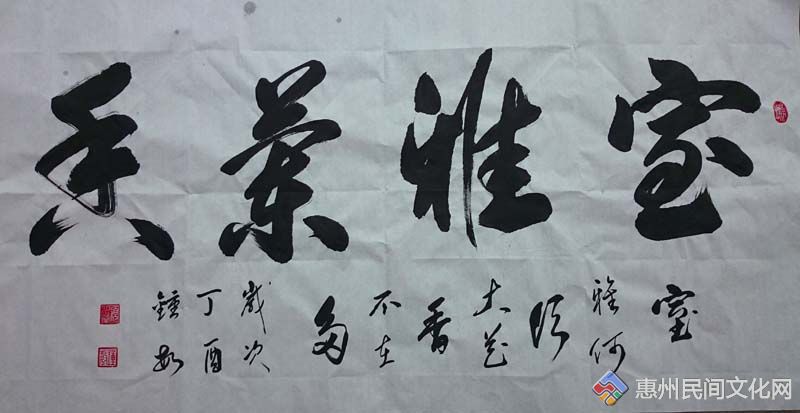 室雅蘭香
室
雅何
須
大花
香
不在
多
歲次
丁酉
鍾
惠州民间文化网